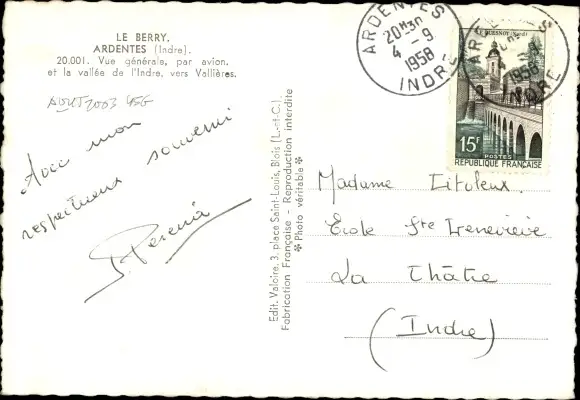 LE BERRY.
ARDENTES (Indre).
20.001. Vue générale, par avion.
et la vallée de l'Indre, vers Vallières.
AOUT 2003 45G
Avec mon
respectueux souvenir
Edit. Valoire, 3, place Saint-Louis, Blois (L.-et-C.)
Fabrication Française - Reproduction interdite
* Photo véritable *
ARDENTES
20H30
4 - 9
1958
INDRE
ARDENTES
4 - 9
1958
INDRE
LE QUESNOY (Nord)
15F
POSTES
RÉPUBLIQUE FRANÇAISE
Madame
Ecole Ste Genevieve
La Châtre
(Indre)